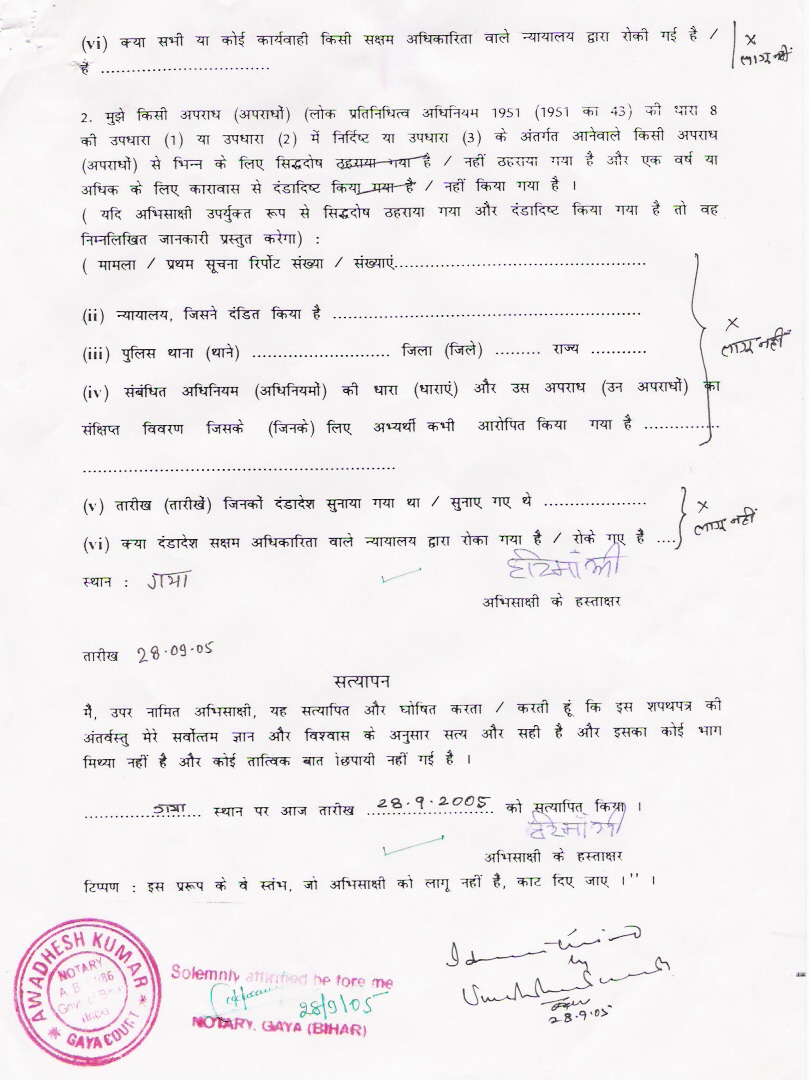 (vi) क्या सभी या कोई कार्यवाही किसी सक्षम अधिकारिता वाले न्यायालय द्वारा रोकी गई है /
है ................................
x
लागू नहीं
2. मुझे किसी अपराध (अपराधों) (लोक प्रतिनिधित्व अधिनियम 1951 (1951 का 43) की धारा 8
की उपधारा (1) या उपधारा (2) में निर्दिष्ट या उपधारा (3) के अंतर्गत आनेवाले किसी अपराध
(अपराधों) से भिन्न के लिए सिद्धदोष ठहराया गया है / नहीं ठहराया गया है और एक वर्ष या
अधिक के लिए कारावास से दंडादिष्ट किया गया है / नहीं किया गया है ।
( यदि अभिसाक्षी उपर्युक्त रूप से सिद्धदोष ठहराया गया और दंडादिष्ट किया गया है तो वह
निम्नलिखित जानकारी प्रस्तुत करेगा) :
( मामला / प्रथम सूचना रिर्पोट संख्या / संख्याएं................................................
(ii) न्यायालय, जिसने दंडित किया है ..........................................................
(iii) पुलिस थाना (थाने) .......................... जिला (जिले) ......... राज्य ...........
x
लागू नहीं
(iv) संबंधित अधिनियम (अधिनियमों) की धारा (धाराएं) और उस अपराध (उन अपराधों) का
संक्षिप्त विवरण जिसके (जिनके) लिए अभ्यर्थी कभी आरोपित किया गया है ..............
...........................................................
(v) तारीख (तारीखें) जिनकों दंडादेश सुनाया गया था / सुनाए गए थे ...................
x
लागू नहीं
(vi) क्या दंडादेश सक्षम अधिकारिता वाले न्यायालय द्वारा रोका गया है / रोके गए है ....
स्थान : गया
अभिसाक्षी के हस्ताक्षर
तारीख 28.09.05
सत्यापन
मै, उपर नामित अभिसाक्षी, यह सत्यापित और घोषित करता / करती हूं कि इस शपथपत्र की
अंतर्वस्तु मेरे सर्वोत्तम ज्ञान और विश्वास के अनुसार सत्य और सही है और इसका कोई भाग
मिथ्या नहीं है और कोई तात्विक बात छिपायी नहीं गई है ।
गया स्थान पर आज तारीख 28.9.2005 को सत्यापित किया ।
अभिसाक्षी के हस्ताक्षर
टिप्पण : इस प्ररूप के वे स्तंभ, जो अभिसाक्षी को लागू नहीं है, काट दिए जाए ।'' ।
AWADHESH KUMAR
NOTARY
GAYA COURT
Solemnly affirmed before me
28/9/05
NOTARY. GAYA (BIHAR)
by
28.9.05